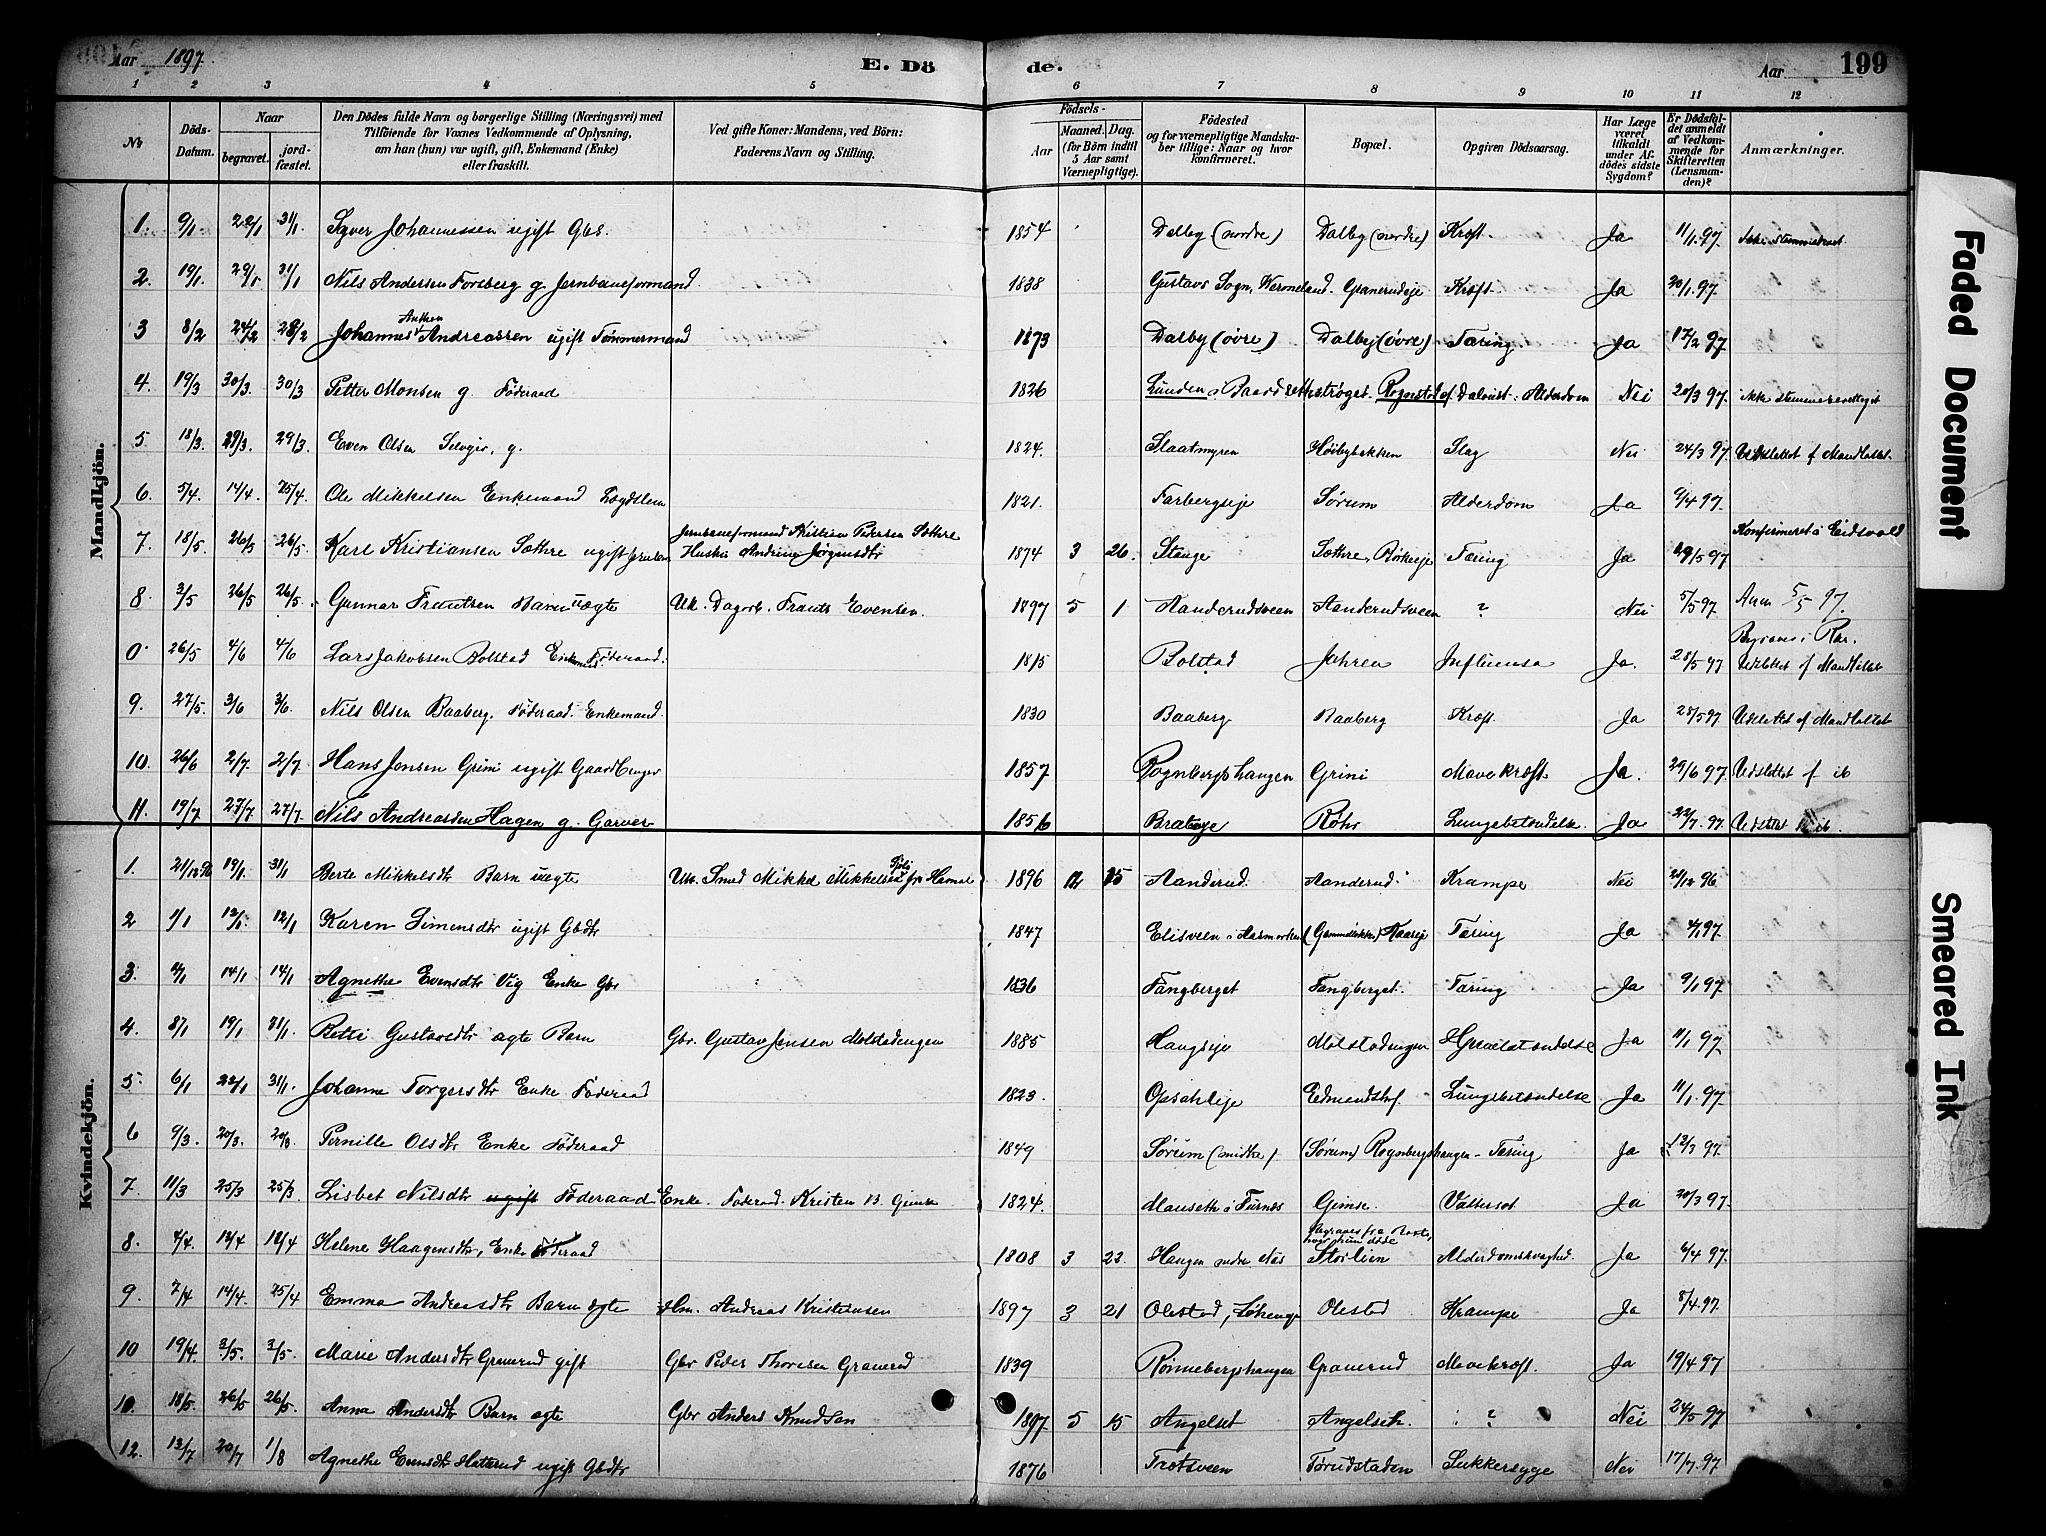 Aar 1897. E. Dö de. Aar 199
1 2 3 4 5 6 7 8 9 10 11 12
Nr Döds-Datum. Naar begravet. jordfæstet. Den Dödes fulde Navn og borgerlige Stilling (Næringsvei) med Tilföiende for Voxnes Vedkommende af Oplysning, om han (hun) var ugift, gift, Enkemand (Enke) eller fraskilt. Ved gifte Koner: Mandens, ved Börn: Faderens Navn og Stilling. Födsels- Aar Maaned. Dag. (for Börn indtil 5 Aar samt Værnepligtige). Födested og for værnepligtige Mandskaber tillige: Naar og hvor konfirmeret. Bopæl. Opgiven Dödsaarsag. Har Læge været tilkaldt under Afdödes sidste Sygdom? Er Dödsfaldet anmeldt af Vedkommende for Skifteretten (Lensmanden)? Anmærkninger.
Mandkjön.
1. 9/1 22/1 31/1 Syver Johannessen ugift Gbs. 1854 Dalby (nordre) Dalby (nordre) Kræft. Ja 11/1 97.
2. 19/1 29/1 31/1 Nils Andersen Forsberg g. Jernbaneformand 1838 Gustavs Sogn, Vermeland. Granerudeje Kræft. Ja 20/1 97.
3 8/2 24/2 28/2 Johannes Anthon Andreassen ugift Tømmermand 1873 Dalby (övre) Dalby (övre) Tæring. Ja 17/2 97
4. 19/3 30/3 30/3 Petter Monsen g. Føderaad 1826 Lunden i Alderdom Nei 20/3 97. ikke stemmeberettiget
5 18/3 29/3 29/3 Even Olsen g. 1824. Slaatmyren Høibybakken Slag Nei 24/3 97. Udslettet af Mandtallet.
6. 5/4. 14/4. 25/4. Ole Mikkelsen Enkemand Lægdslem 1821. Farbergseje Sørum Alderdom Ja 9/4 97.
7. 18/5. 26/5 26/5. Karl Kristiansen Sæthre ugift Jernbanformand Kristian Pedersen Sæthre Hustru Andrine Jørgensdtr 1874 3 26. Stange Sæthre, Tæring Ja 19/5 97 Konfirmeret i Eidsvold
8. 3/5 26/5 26/5. Gunnar Frantsen Barn uægte Uk. Dagarb. Frants Evensen. 1897 5 1 Aanderudsveen Aanderudsveen ? Nei 5/5 97. Anm 5/5 97.
0 26/5 4/6 4/6 Lars Jakobsen Bolstad Enkemd. Føderaad. 1815 Bolstad Jahren Influensa Ja. 28/5 97 Udslettet af Mandtallet
9. 27/5. 3/6 3/6. Nils Olsen Baaberg. Føderaad. Enkemand. 1830 Baaberg Baaberg Kræft. Ja 28/5 97 Udslettet af Mandtallet
10. 26/6 2/7. 2/7. Hans Jensen Grini ugift Gaardbruger 1857 Rognbergshaugen Grini Mavekræft. Ja. 29/6 97. Udslettet af ib
11. 19/7 27/7. 27/7. Nils Andreassen Hagen g. Garver 1856 Røhr Lungebetændelse. Ja 22/7. 97. Udslettet ib.
Kvindekjön.
1. 21/12 96 19/1. 31/1 Berte Mikkelsdtr Barn uægte Uk. Smed Mikkel Mikkelsen fra Hamar 1896 12 15 Aanderud. Aanderud. Krampe Nei 21/12 96
2 1/1 12/1. 12/1 Karen Simensdtr ugift Gbdtr 1847 Elisveen i Aasmarken Tæring Ja 4/1 97.
3. 4/1 14/1 14/1 Agnethe Evensdtr Vig Enke Gbr 1836 Fangberget Fangberget. Tæring Ja 9/1 97.
4. 8/1 19/1 31/1. Betti Gustavsdtr ægte Barn Gbr. Gustav Jensen Molstadengen 1885 Haugseje Molstadengen Hjernebetændelse Ja 11/1 97.
5. 6/1 22/1 31/1. Johanne Torgersdtr Enke Føderaad 1823. Opsahleje Lungebetændelse Ja 11/1. 97.
6 9/3. 20/3. 20/3. Pernille Olsdtr Enke Føderaad 1849 Sørum (midtre) (Sørum) Rognbergshaugen Tæring Ja 12/3 97.
7. 11/3 25/3 25/3. Lisbet Nilsdtr ugift Føderaad Enke. Føderaad. Kristen B. Gimse 1824. Mauseth i Furnes Gimse. Vattersot Ja 20/3 97.
8. 4/4. 12/4 12/4 Helene Haagensdtr, Enke Føderaad 1808 3 23. Haugen nedre Næs Storlien Alderdomssvaghed. Ja 6/4 97.
9. 7/4 14/4. 25/4 Emma Andreasdtr Barn ægte Hm. Andreas Kristiansen 1897 3 21 Olestad, Olestad Krampe Ja 8/4 97.
10 19/4. 3/5. 3/5. Marie Andersdtr Graverud gift Gbr Peder Thoresen Graverud 1839 Rønnebergshaugen Graverud Mavekræft. Ja 19/4 97
10. 18/5. 26/5 26/5. Anna Andersdtr Barn ægte Gbr Anders Knudsen 1897 5 15 Angelset Angelseth. ? Nei 24/5 97
12. 13/7 20/7 1/8 Agnethe Evensdtr ugift Gbdtr 1876 Trætsveen Tørudstaden Sukkersyge Nei 17/7. 97.
Faded Document
Smeared Ink